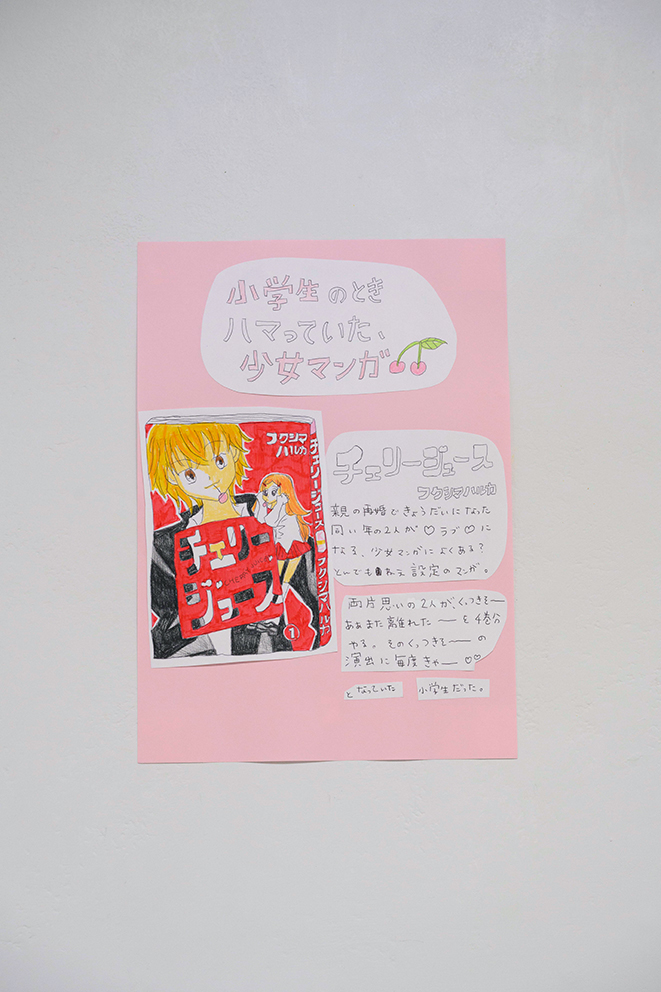 小学生のとき
ハマっていた、
少女マンガ
フクシマ
ハルカ
チェリージュース
フクシマハルカ
チェリー
ジュース
1
チェリージュース
フクシマハルカ
親の再婚できょうだいになった
同い年の2人が♡ラブ♡に
なる、少女マンガによくある?
とんでもねえ設定のマンガ。
両片思いの2人がくっつきそ〜
ああまた離れた〜を4巻分
やる。そのくっつきそ〜の
演出に毎度きゃ〜♡♡
となっていた
小学生だった。